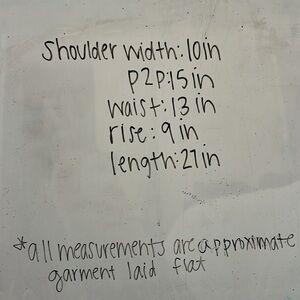 shoulder width: 10in
p2p: 15 in
waist: 13 in
rise: 9 in
length: 27 in
*all measurements are approximate
garment laid flat